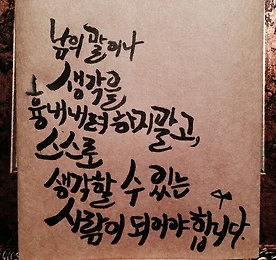 남의 말이나
생각을
흉내내려 하지말고,
스스로
생각할 수 있는
사람이 되어야 합니다.